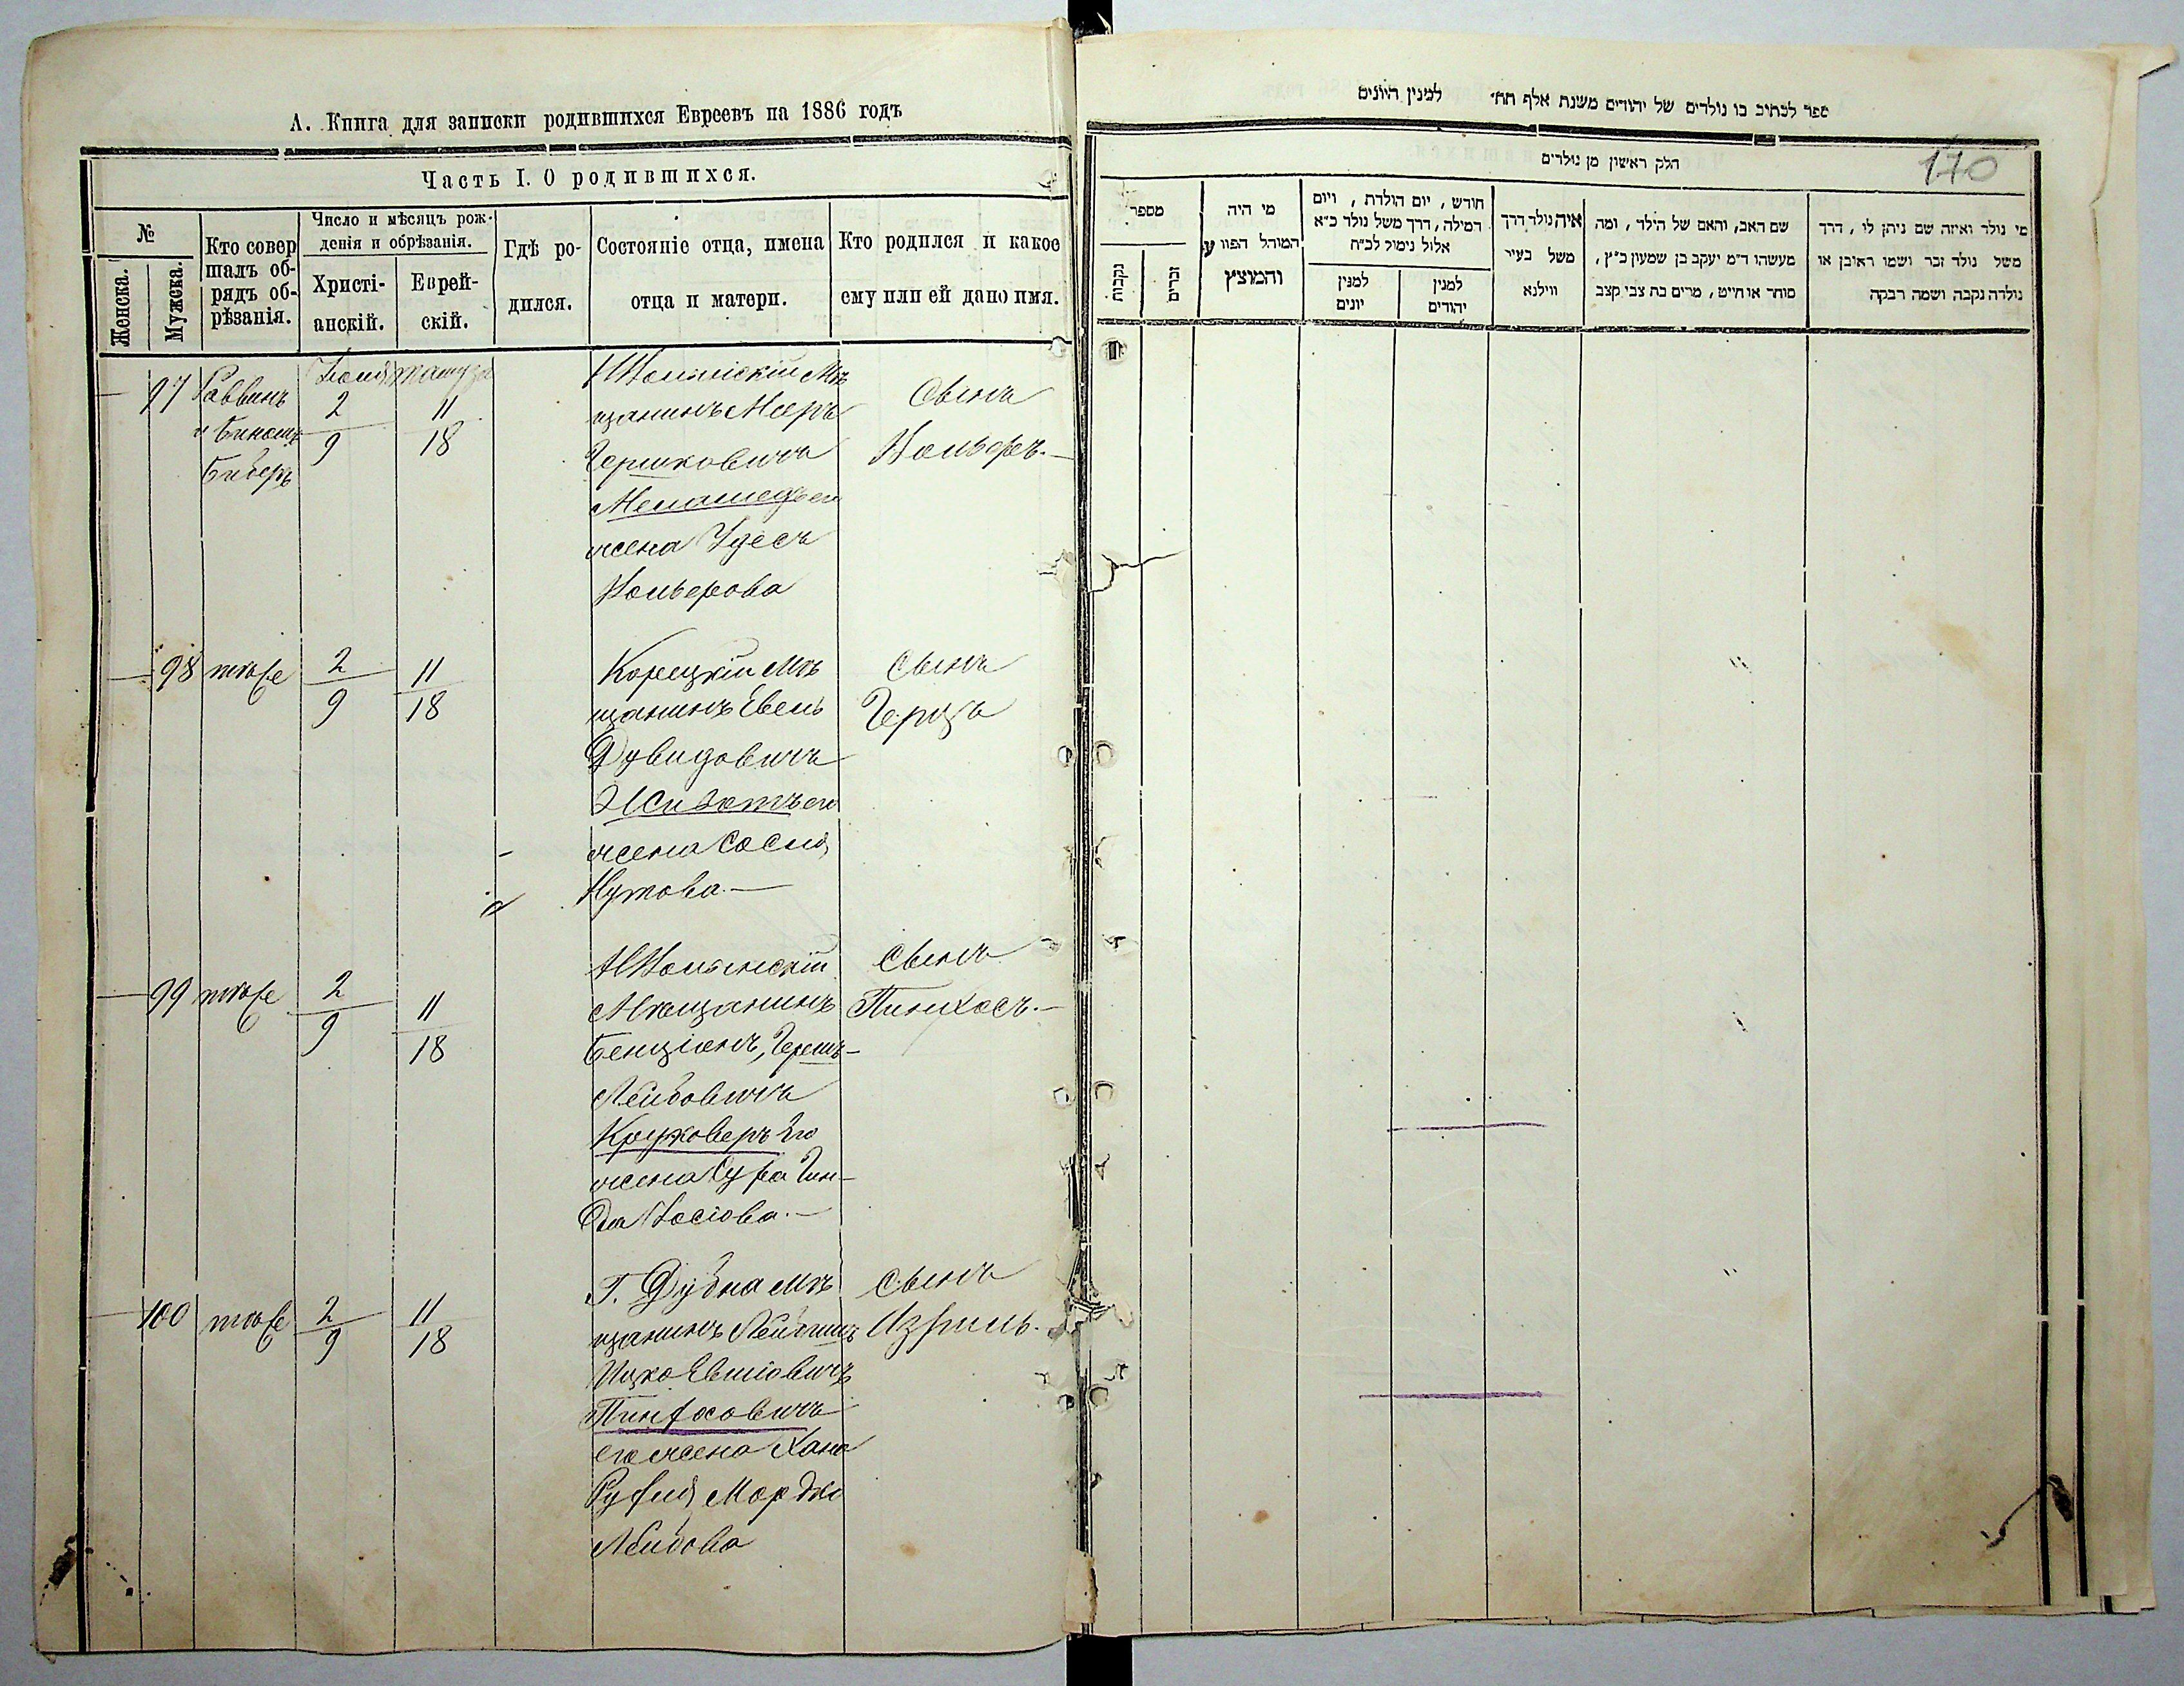 А. Книга для записки родившихся Евреевъ на 1886 годъ
Часть I. О родившихся.
№
Женска.
Мужска.
Кто совер
шалъ об-
рядъ об-
рѣзанія.
Число и мѣсяцъ рож-
денія и обрѣзанія.
Христі-
анскій.
Еврей-
скій.
Гдѣ ро-
дился.
Состояніе отца, имена
отца и матери.
Кто родился и какое
ему или ей дано имя.
97
Раввинъ
и
Биберъ
Іюля
2
9
11
18
щанинъ Меръ
Гершковичъ
его
жена
Сынъ
98
тоже
2
9
11
18
Корецкій Мѣ
щанинъ Евель
Дувидовичъ
его
жена Сося
Нутова.—
Сынъ
Герцъ
99
тоже
2
9
11
18
Мѣщанинъ
Бенціонъ, Гершъ-
Лейбовичъ
Круковеръ Его
жена Сура Гин-
да Іосіова.—
Сынъ
Пинхосъ.—
100
тоже
2
9
11
18
Г. Дубна мѣ
щанинъ
Ицко
Пинхосовичъ
его жена Хана
Рухля Мордко
Лейбова
Сынъ
Изриль.
ספר לכתיב בו נולדים של יהודים משנת אלף תת׳ למנין היונים
170
חלק ראשון מן נולדים
מספר
נקבות
זכרים
מי היה
המוהל הפורע
והמוצץ
חודש, יום הולדת, ויום
דמילה, דרך משל נולד כ״א
אלול נימול לכ״ח
למנין
יונים
למנין
יהודים
איה נולד דרך
משל בעיר
ווילנא
שם האב, והאם של הילד, ומה
מעשהו ד״מ יעקב בן שמעון כ״ץ,
סוחר או חייט, מרים בת צבי קצב
מי נולד ואיזה שם ניתן לו, דרך
משל נולד זכר ושמו ראובן או
נולדה נקבה ושמה רבקה